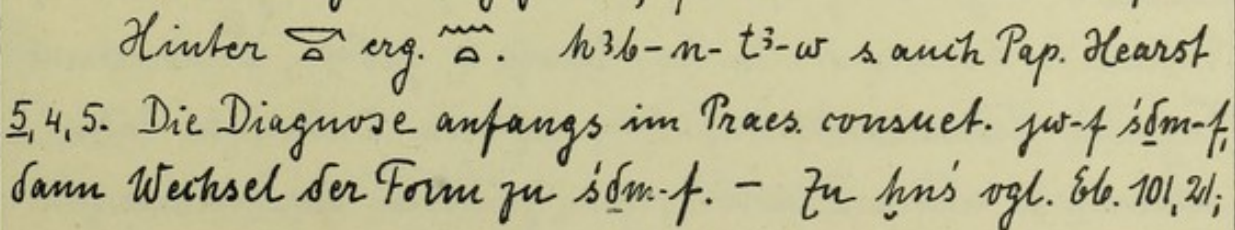 Hinter 𓎟𓏏 erg. 𓈖𓏏. h3b-n-t3-w s. auch Pap. Hearst
5,4,5. Die Diagnose anfangs im Praes. consuet. jw-f śḏm-f,
dann Wechsel der Form zu śḏm-f. – Zu ḫnś vgl. Eb. 101,21;